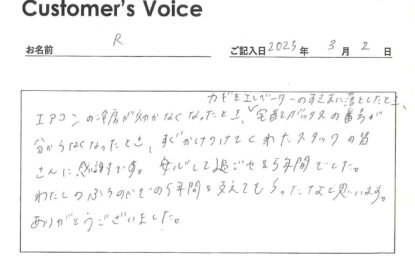 Customer's Voice
お名前 R ご記入日 2025年 3月 2日
カギをエレベーターのすきまに落としたとき、
エアコンの冷房が効かなくなったとき、宅配ボックスの番号が
分からなくなったとき、すぐかけつけてくれたスタッフの皆
さんに感謝です。安心して過ごせる5年間でした。
わたしの の5年間を支えてもらったなと思います。
ありがとうございました。